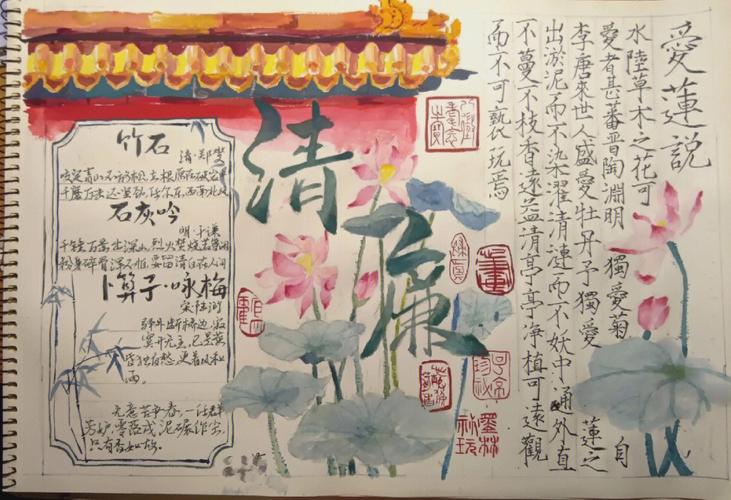 愛蓮說
水陸草木之花可
愛者甚蕃晉陶淵明獨愛菊自
李唐來世人盛愛牡丹予獨愛蓮之
出淤泥而不染濯清漣而不妖中通外直
不蔓不枝香遠益清亭亭淨植可遠觀
而不可褻玩焉
清廉
竹石
清·郑燮
咬定青山不放松,立根原在破岩中
千磨万击还坚劲,任尔东西南北风
石灰吟
明·于谦
千锤万凿出深山,烈火焚烧若等闲
粉身碎骨浑不怕,要留清白在人间
卜算子·咏梅
宋·陆游
驿外断桥边,寂
寞开无主,已是黄
昏独自愁,更着风和
雨。
无意苦争春,一任群
芳妒,零落成泥碾作尘,
只有香如故。
墨林
祕玩